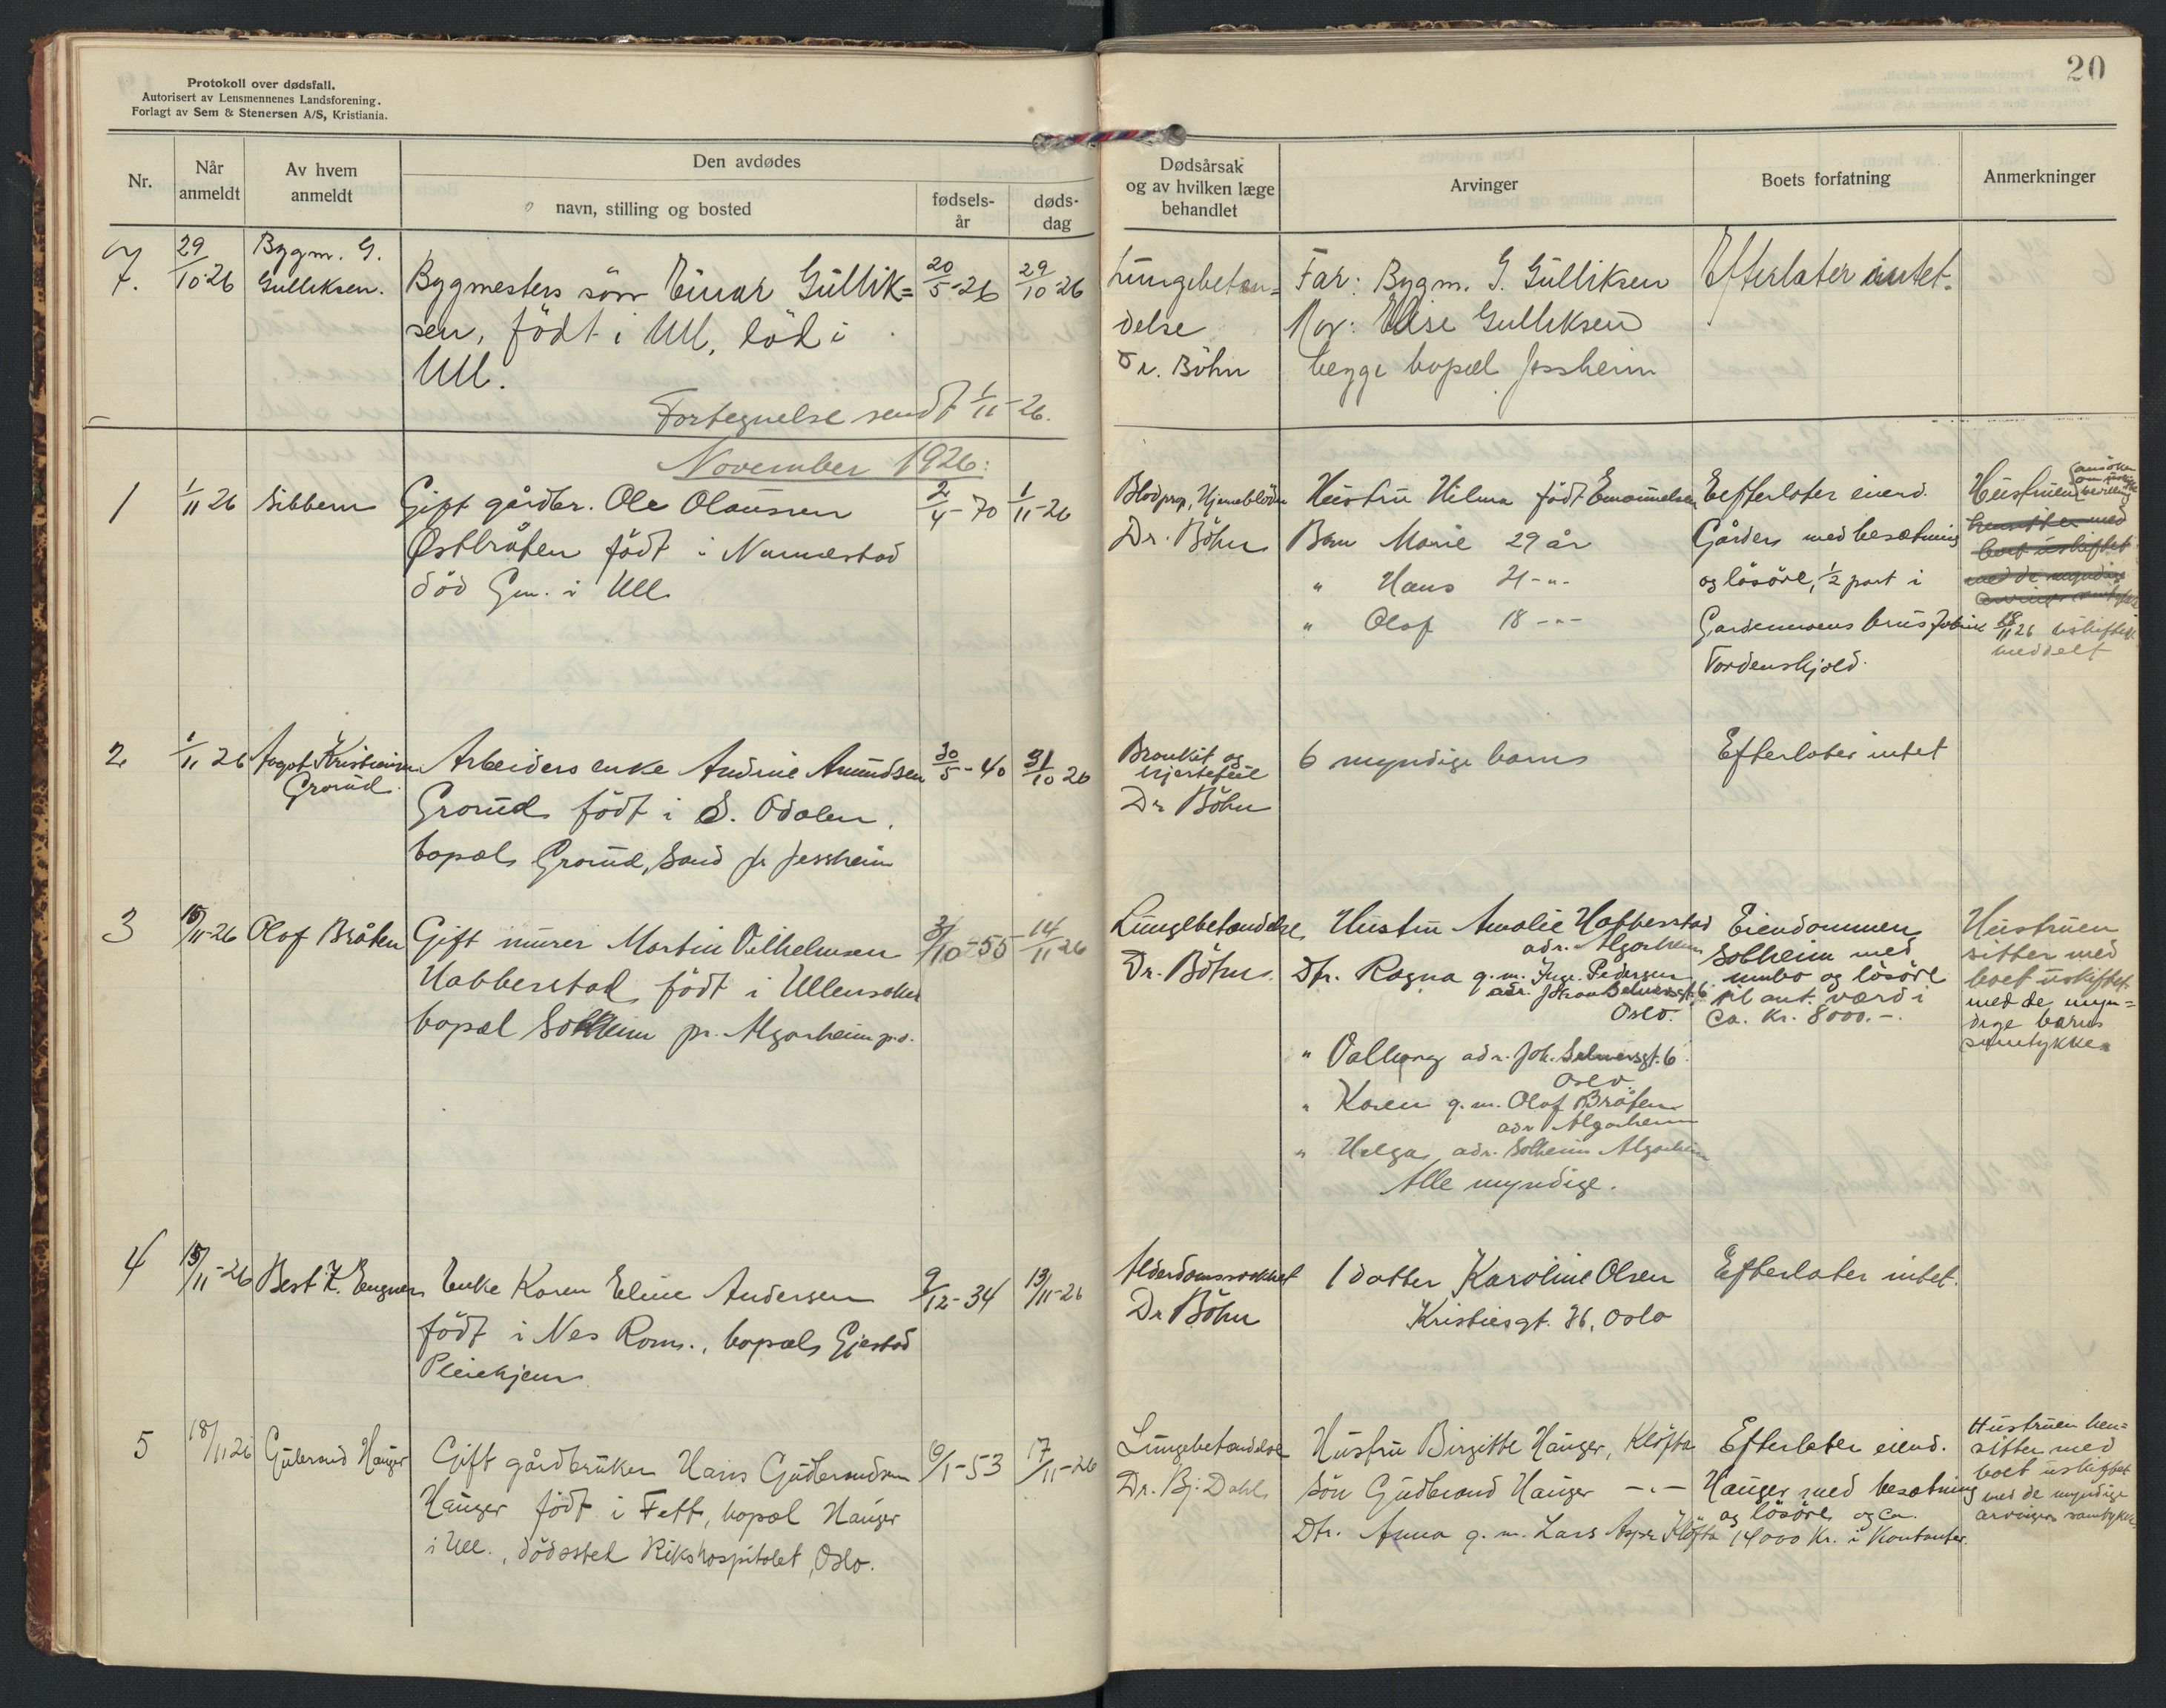 Protokoll over dødsfall.
Autorisert av Lensmennenes Landsforening.
Forlagt av Sem & Stenersen A/S, Kristiania.
Nr.
Når anmeldt
Av hvem anmeldt
Den avdødes
navn, stilling og bosted
fødsels-år
døds-dag
7.
29/10-26
Bygm. G.
Gulliksen.
Bygmesters søn Einar Gullik=
sen, født i Ull, död i
Ull.
20/5-26
29/10-26
Fortegnelse sendt 1/11-26.
November 1926:
1
1/11 26
Sibbern
Gift gårdbr. Ole Olaussen
Østbråten født i Nannestad
död Gm. i Ull
2/4-70
1/11-26
2
1/11 26
Aagot Kristiansen
Grorud.
Arbeiders enke Andrine Amundsen
Grorud født i S. Odalen.
bopæl Grorud, Sand pr Jessheim
30/5-40
31/10 26
3
15/11-26
Olaf Bråten
Gift murer Martin Vilhelmsen
Habberstad født i Ullensaker
bopæl Solheim pr. Algarheim p.o.
31/10-55
14/11 26
4
15/11-26
Best. Z. Engnes
Enke Karen Eline Andersen
født i Nes Rom., bopæl Gjestad
Pleiehjem
9/12-34
13/11-26
5
18/11 26
Gulbrand Hauger
Gift gårdbruker Hans Gudbrandsen
Hauger født i Fett, bopæl Hauger
i Ull., dödssted Rikshospitalet, Oslo.
6/1-53
17/11-26
20
Dødsårsak
og av hvilken læge
behandlet
Arvinger
Boets forfatning
Anmerkninger
Lungebetæn=
delse
Dr. Böhn
Far: Bygm. G. Gulliksen
Mor: Elise Gulliksen
begge bopæl Jessheim
Efterlater intet.
Blodprop, Hjerneblödn
Dr. Böhn
Hustru Hilma født Emanuelsen
Barn Marie 29 år
" Hans 21 -"-
" Olaf 18 -"-
Eefterlater eiend.
Gården med besætning
og lösöre, 1/2 part i
Gardermoens brusfabrik
Tordenskjold.
Hustruen
ansöker
om
bevilling
hensitter med
boet uskiftet
med de myndige
arvinger samtykke
18/11 26 uskiftet
meddelt
Bronkit og
hjertefeil
Dr Böhn
6 myndige barn
Efterlater intet
Lungebetændelse
Dr. Böhn
Hustru Amalie Habberstad
adr. Algarheim
Dtr. Ragna g.m. Inge Pedersen
adr. Johan Selmersgt. 6
Oslo.
" Valborg adr. Joh. Selmersgt. 6
Oslo.
" Karen g.m. Olaf Bråten
adr Algarheim
" Helga adr. Solheim Algarheim
Alle myndige.
Eiendommen
Solheim med
innbo og lösöre
til ant. værdi
ca. Kr. 8000.-.
Hustruen
sitter med
boet uskiftet
med de myn=
dige barns
samtykke
Alderdomssvakhet
Dr Böhn
1 datter Karoline Olsen
Kristiesgt. 36, Oslo
Efterlater intet.
Lungebetændelse
Dr. Bj. Dahl
Hustru Birgitte Hauger, Kløfta
Sön Gudbrand Hauger -"-
Dtr. Anna g.m. Lars Asper Kløfta
Efterlater eiend.
Hauger med besætning
og lösöre og ca.
14000 Kr. i kontanter.
Hustruen hen=
sitter med
boet uskiftet
med de myndige
arvingers samtykke